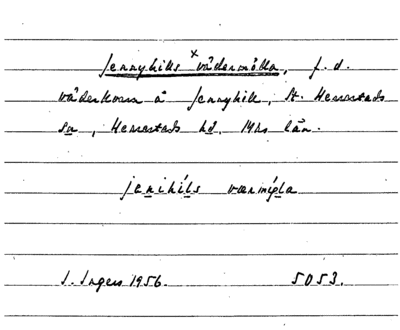 Jennyhills vädermölla, f. d.
väderkvarn å Jennyhill, St. Herrestads
sn, Herrestads hd, Mhs län.
jenihils værmǫla
I. Ingers 1956. 5053.